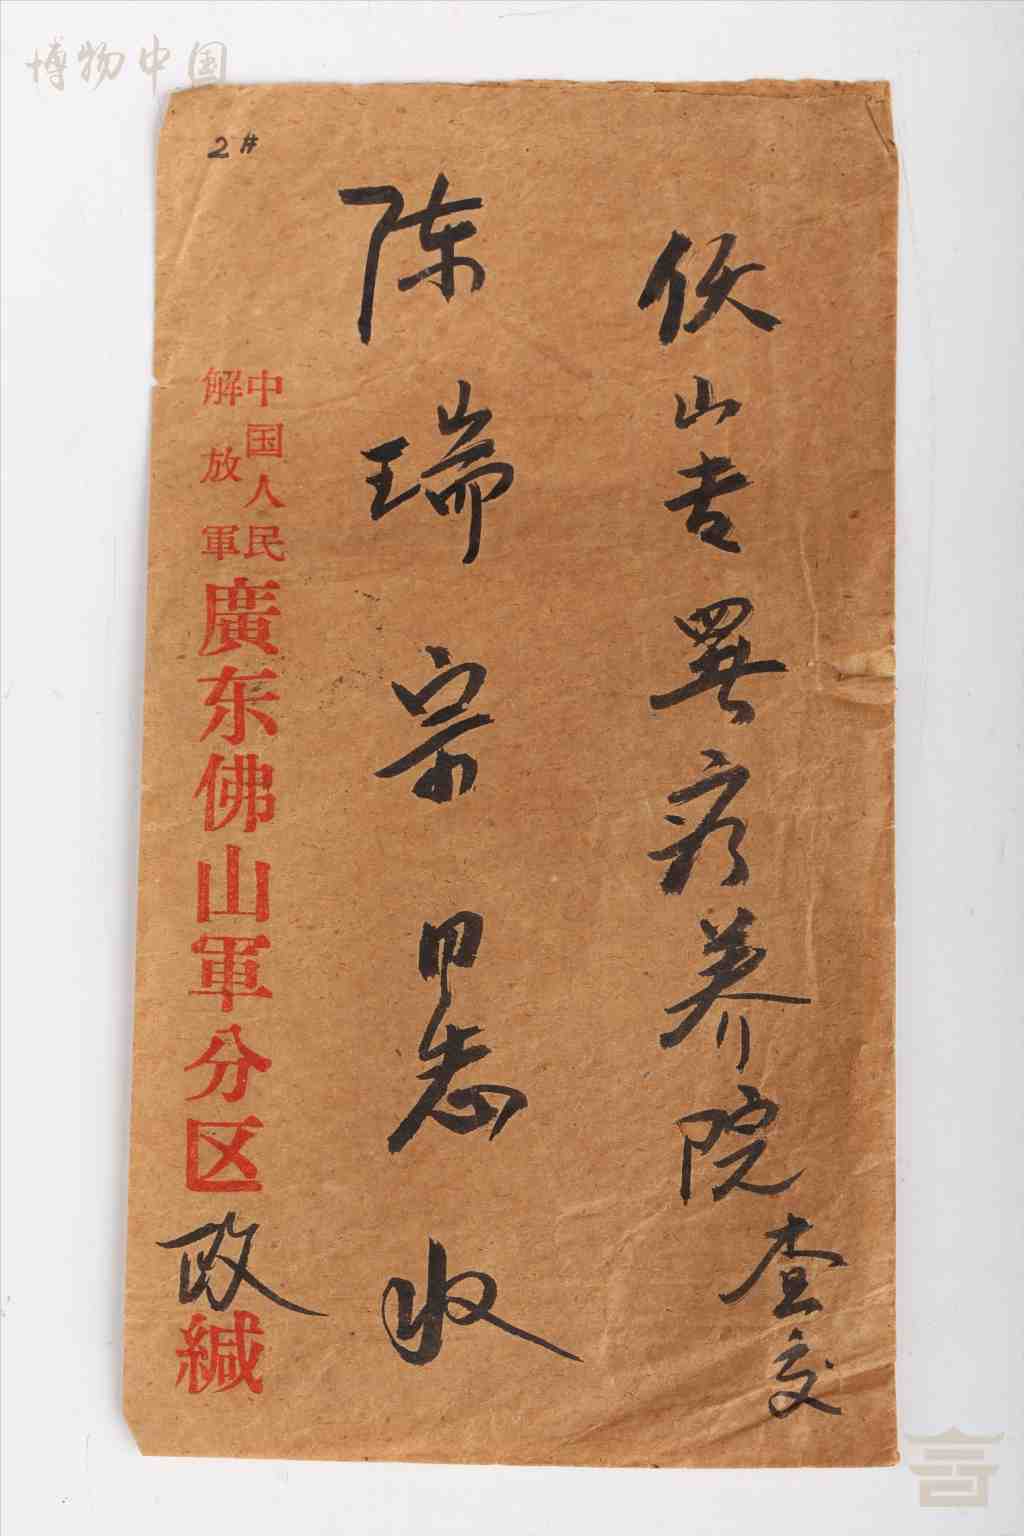 博物中国
2#
佛山专署疗养院查交
陈瑞宗同志收
中国人民
解放軍
廣东佛山軍分区政緘